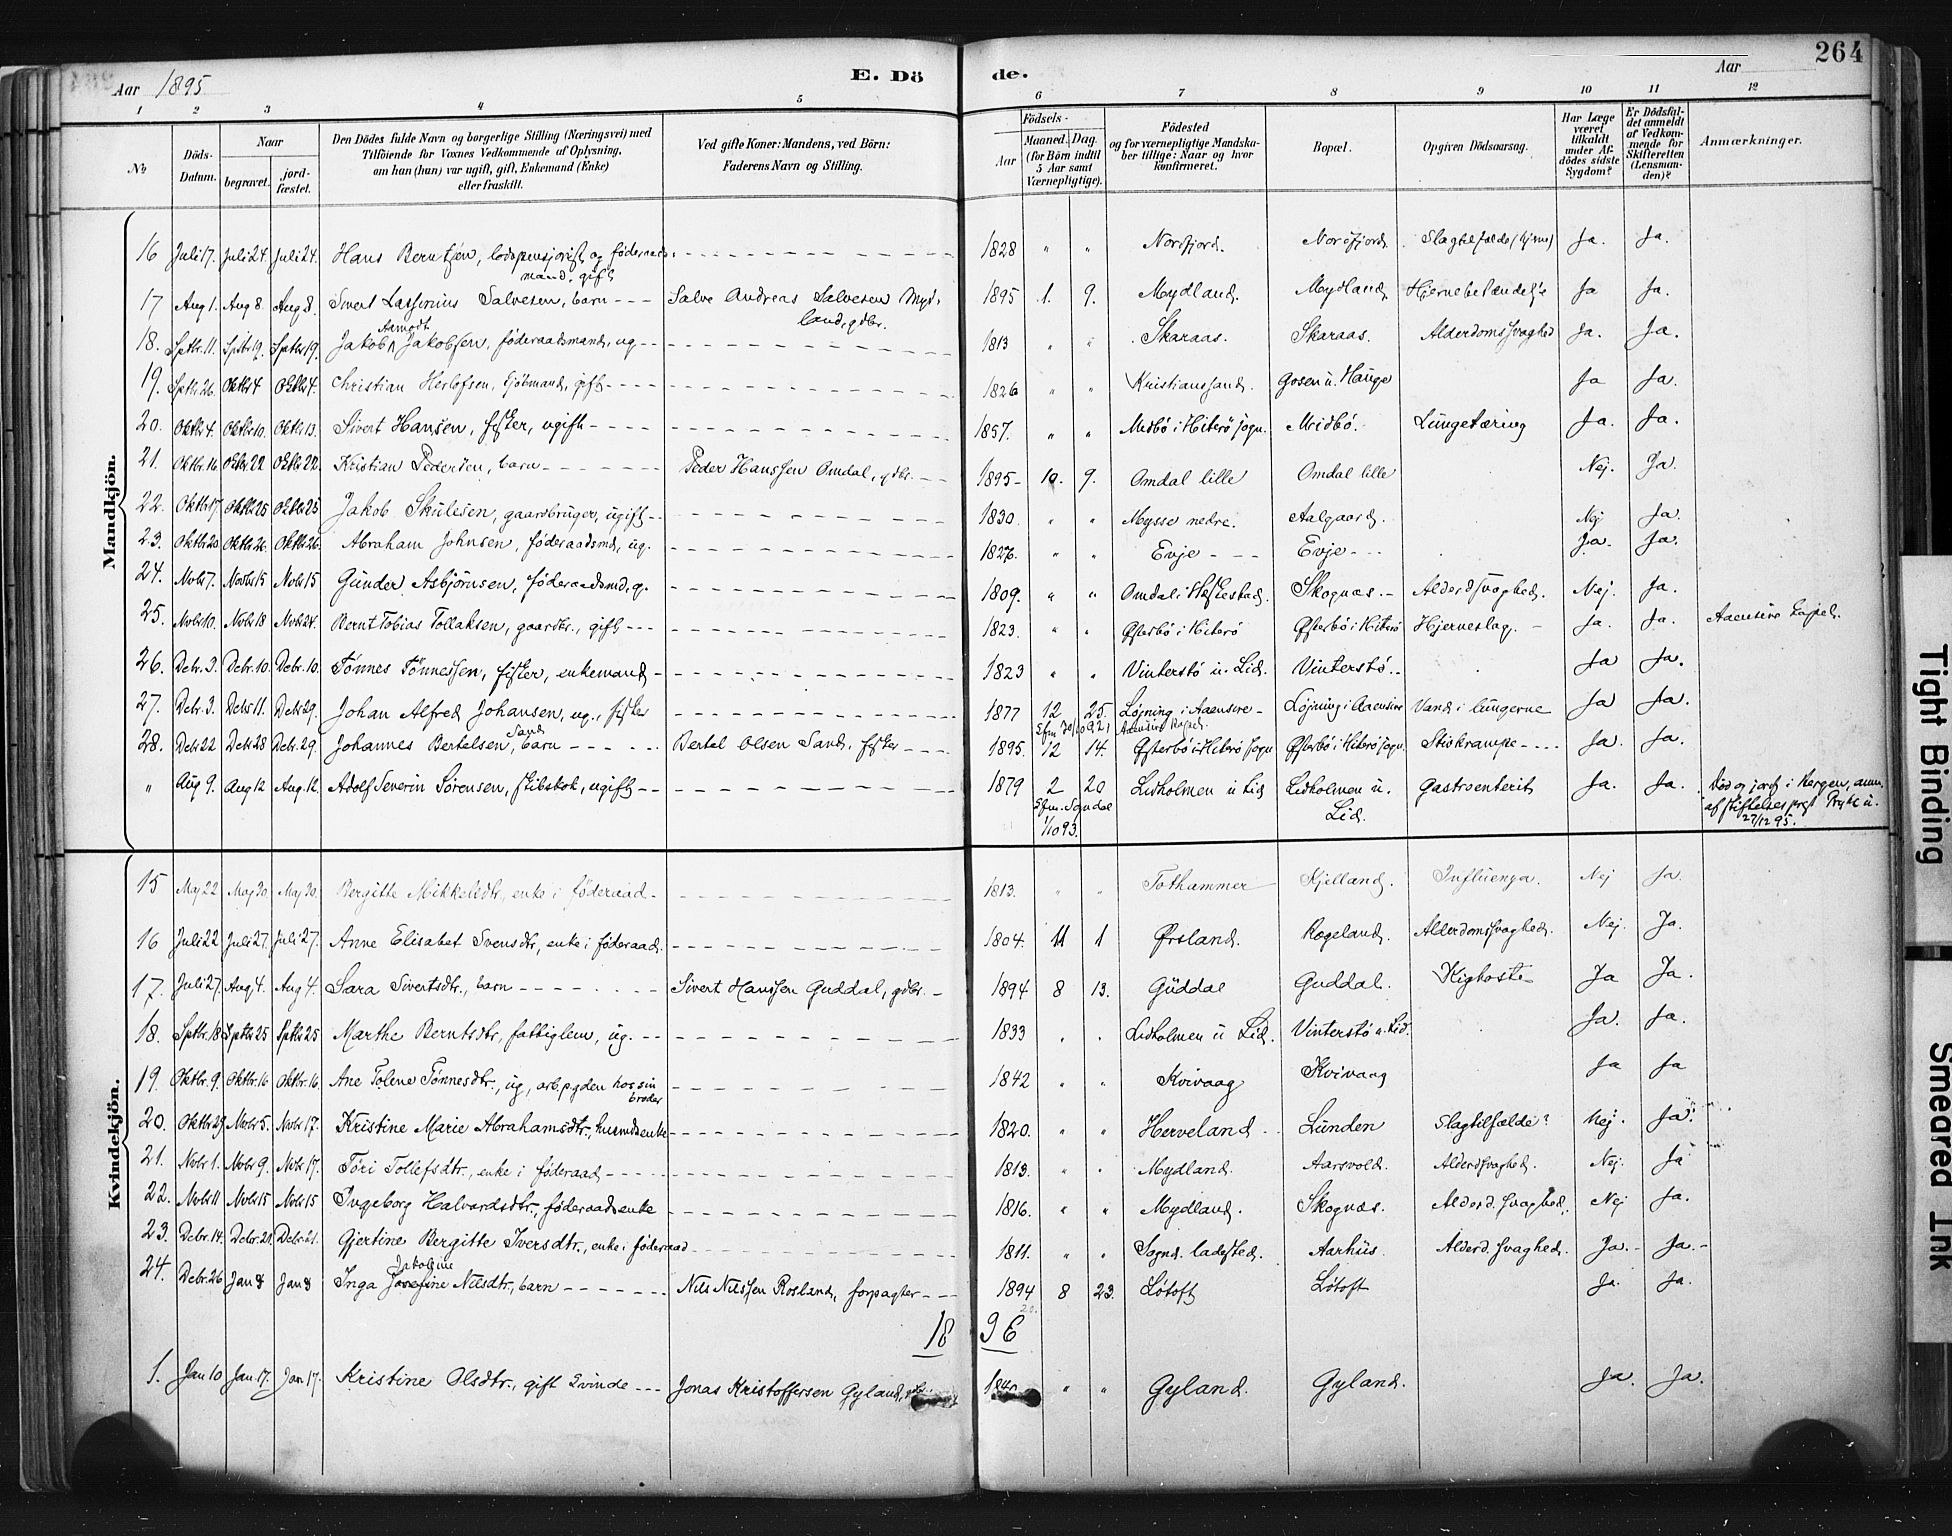 264
Aar 1895
E. Dö de.
Aar
1 2 3 4 5 6 7 8 9 10 11 12
No
Döds-Datum.
Naar
begravet. jord-fæstet.
Den Dödes fulde Navn og borgerlige Stilling (Næringsvei) med
Tilföiende for Voxnes Vedkommende af Oplysning,
om han (hun) var ugift, gift, Enkemand (Enke)
eller fraskilt.
Ved gifte Koner: Mandens, ved Börn:
Faderens Navn og Stilling.
Födsels-
Aar Maaned. Dag.
(for Börn indtil
5 Aar samt
Værnepligtige).
Födested
og for værnepligtige Mandska-
ber tillige: Naar og hvor
konfirmeret.
Bopæl.
Opgiven Dödsaarsag.
Har Læge
været
tilkaldt
under Af-
dödes sidste
Sygdom?
Er Dödsfal-
det anmeldt
af Vedkom-
mende for
Skifteretten
(Lensman-
den)?
Anmærkninger.
Mandkjön.
16 Juli 17. Juli 24. Juli 24. Hans Berntsen, lodspensjonist og føderaads- 1828 " " Nordfjord. Nordfjord Slagtilfælde (hjerne) Ja. Ja.
mand, gift
17 Aug 1. Aug 8. Aug 8. Sivert Lassenius Salvesen, barn Salve Andreas Salvesen Myd- 1895 1. 9. Mydland. Mydland Hjernebetændelse Ja Ja.
land, gdbr.
Aamodt
18. Sptbr. 11. Sptbr 19. Sptbr 19. Jakob Jakobsen, føderaadsmand, ug 1813 " " Skaraas. Skaraas. Alderdomssvaghed Ja. Ja.
19. Sptbr 26. Oktbr 4 Oktbr 4. Christian Herlofsen, kjøbmand, gift 1826 " " Kristianssand. Gosen u. Hauge Ja Ja.
20. Oktbr 4. Oktbr 10. Oktbr 13. Sivert Hansen, fisker, ugift 1857. " " Midbø i Hiterø sogn. Midbø. Lungetæring Ja. Ja.
21. Oktbr. 16 Oktbr 22 Oktbr 22. Kristian Pedersen, barn Peder Hanssen Omdal, gdbr. 1895 10. 9. Omdal lille Omdal lille Nej. Ja.
22. Oktbr 17. Oktbr 25 Oktbr 25 Jakob Skulesen, gaardbruger, ugift 1830. " " Mysse nedre. Aalgaard. Nej Ja.
23. Oktbr 20. Oktbr 26. Oktbr 26. Abraham Johnsen, føderaadsmd, ug. 1826. " " Evje Evje Ja. Ja.
24. Novbr 7. Novbr 15 Novbr 15 Gunder Asbjørnsen, føderaadsmd, g. 1809. " " Omdal i Hestestad. Skognæs. Alderdsvaghed. Nej. Ja.
25. Novbr 10. Novbr 18 Novbr 24. Bernt Tobias Tollaksen, gaardbr., gift 1823. " " Østerbø i Hiterø Østerbø i Hiterø Hjerneslag. Ja. Ja. Aaensire Kapel.
26. Debr. 3. Debr. 10. Debr. 10. Tønnes Tønnessen, fisker, enkemand 1823 " " Vinterstø u. Lid. Vinterstø. Ja Ja.
27. Debr. 3. Debr 11. Debr 29. Johan Alfred Johansen, ug., fisker 1877 12 25. Løgning i Aaensire Løgning i Aaensire Vand i lungerne Ja Ja.
Sand
28. Debr 22 Debr 28 Debr. 29. Johannes Bertelsen, barn Bertel Olsen Sand, fisker 1895. 12 14. Østerbø i Hiterø sogn Østerbø i Hiterø sogn. Stiskrampe Ja. Ja.
" Aug 9. Aug 12 Aug. 12. Adolf Severin Sørensen, skibskok, ugift 1879 2 20 Lidholmen u Lid Lidholmen u. Gastroenterit Ja. Ja. Død og jordf i Bergen, anm.
Cfm. Sogndal Lid. 
1/10 93. 27/12 95.
Kvindekjön.
15 Maj 22 Maj 30. Maj 30. Bergitte Mikkelsdtr, enke i føderaad 1813. " " Tothammer Kjelland. Influenza. Nej Ja.
16 Juli 22 Juli 27. Juli 27. Anne Elisabet Svensdtr, enke i føderaad. 1804. 11 1 Ørsland. Rægeland. Alderdomssvaghed. Nej. Ja.
17. Juli 27. Aug 4. Aug 4. Sara Sivertsdtr., barn Sivert Hanssen Guddal, gdbr. 1894 8 13. Guddal Guddal. Kighoste Ja Ja.
18. Sptbr. 18 Sptbr 25 Sptbr 25 Marthe Berntsdtr, fattiglem, ug. 1833 " " Lidholmen u Lid. Vinterstø u. Lid. Ja. Ja.
19. Oktbr. 9. Oktbr. 16 Oktbr. 16. Ane Tolene Tønnesdtr., ug, arb.pgden hos sin 1842 " " Kvivaag Kvivaag Ja Ja
broder
20. Oktbr 29 Novbr 5. Novbr 17. Kristine Marie Abrahamsdtr, husmdsenke 1820. " " Herveland Lunden Slagtilfælde? Nej. Ja.
21. Novbr 1. Novbr 9. Novbr 17. Tøri Tollefsdtr., enke i føderaad 1813. " " Mydland. Aarsvold. Alderdsvaghed. Nej. Ja
22. Novbr 11 Novbr 15 Novbr 15 Ingeborg Halvardsdtr., føderaadsenke 1816. " " Mydland. Skognæs. Alderd.svaghed, Nej Ja.
23. Debr. 14. Debr. 21. Debr. 21. Gjertine Bergitte Iversdtr., enke i føderaad 1811. " " Sognd. ladested. Aarhus. Alderd.svaghed. Ja. Ja.
Jakobine
24. Debr. 26 Jan 8 Jan 8 Inga Josefine Nilsdtr., barn Nils Nilssen Rosland, forpagter 1894 8 23. Løtoft Løtoft Ja. Ja.
18 96
1. Jan 10 Jan 17. Jan 17. Kristine Olsdtr., gift kvinde Jonas Kristoffersen Gyland, " " Gyland. Gyland. Ja. Ja.
Tight Binding
Smeared Ink